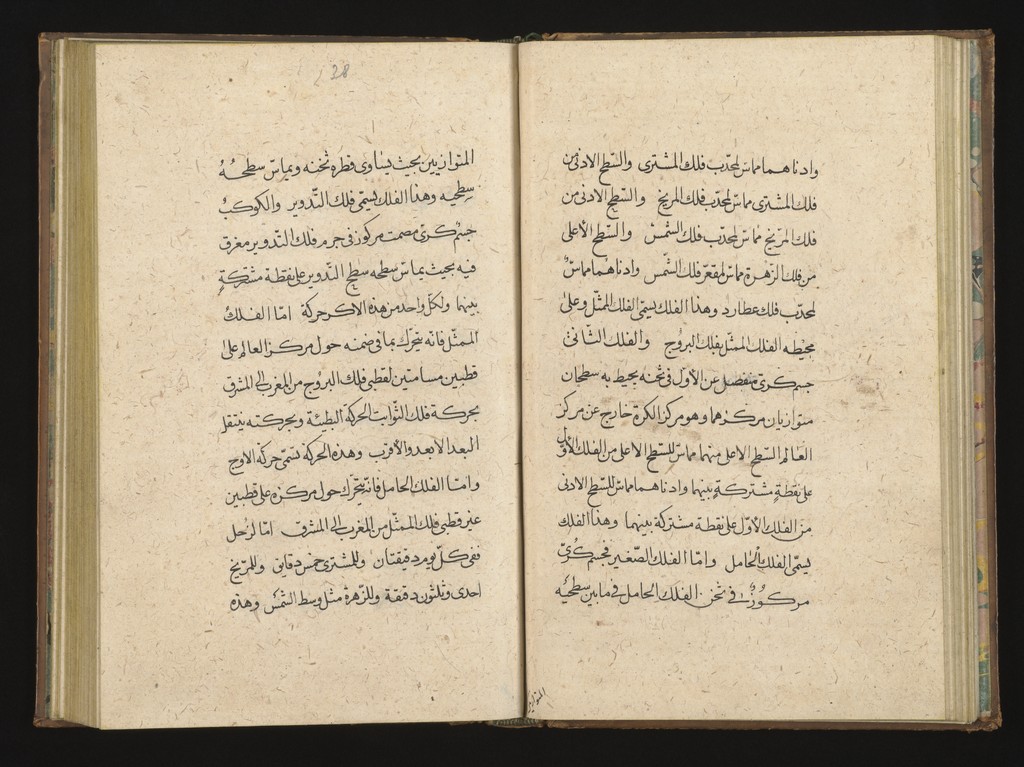 وادناهما مماس لمحدّب فلك المشترى والسّطح الادنى من
فلك المشترى مماسّ لمحدّب فلك المرّيخ والسّطح الادنى من
فلك المرّيخ مماسّ لمحدّب فلك الشّمس والسّطح الأعلى
من فلك الزّهرة مماسّ لمقعّر فلك الشّمس وادناهما مماسٌّ
لمحدّب فلك عطارد وهذا الفلك يسمّى الفلك الممثّل وعلى
محيطه الفلك الممثّل بفلك البروج والفلك الثّانى
جسم كرىّ منفصل عن الأوّل فى ثخنه يحيط به سطحان
متوازيان مركزهما وهو مركز الكرة خارج عن مركز
العالم السّطح الاعلى منهما مماسّ للسّطح الاعلى من الفلك الأوّل
على نقطةٍ مشتركةٍ بينهما وادناهما مماسّ للسّطح الادنى
من الفلك الأوّل على نقطة مشتركة بينهما وهذا الفلك
يسمّى الفلك الحامل وامّا الفلك الصّغير فجسم كرىّ
مركوزٌ فى ثخن الفلك الحامل فيما بين سطحيه
المتوازيين
38
المتوازيين بحيث يساوى قطره ثخنه ويماسّ سطحُهُ
سطحيه وهذا الفلك يسمّى فلك التّدوير والكوكبُ
جسمٌ كرىّ مصمت مركوز فى جرم فلك التّدوير مغرق
فيه بحيث يماسّ سطحه سطح التّدوير على نقطة مشتركةٍ
بينهما ولكلّ واحد من هذه الاكر حركة امّا الفلكُ
الممثّل فانّه يتحرّك بما فى ضمنه حول مركز العالم على
قطبين مسامتين لقطبى فلك البروج من المغرب الى المشرق
بحركة فلك الثّوابت الحركة البطيئة وبحركته ينتقل
البعد الابعد والأقرب وهذه الحركة تسمّى حركة الاوج
وامّا الفلك الحامل فانّه يتحرّك حول مركزه على قطبين
غير قطبى فلك الممثّل من المغرب الى المشرق امّا لزحل
ففى كلّ يوم دقيقتان وللمشترى خمس دقايق وللمرّيخ
احدى وثلثون دقيقة وللزّهرة مثل وسط الشّمس وهذه